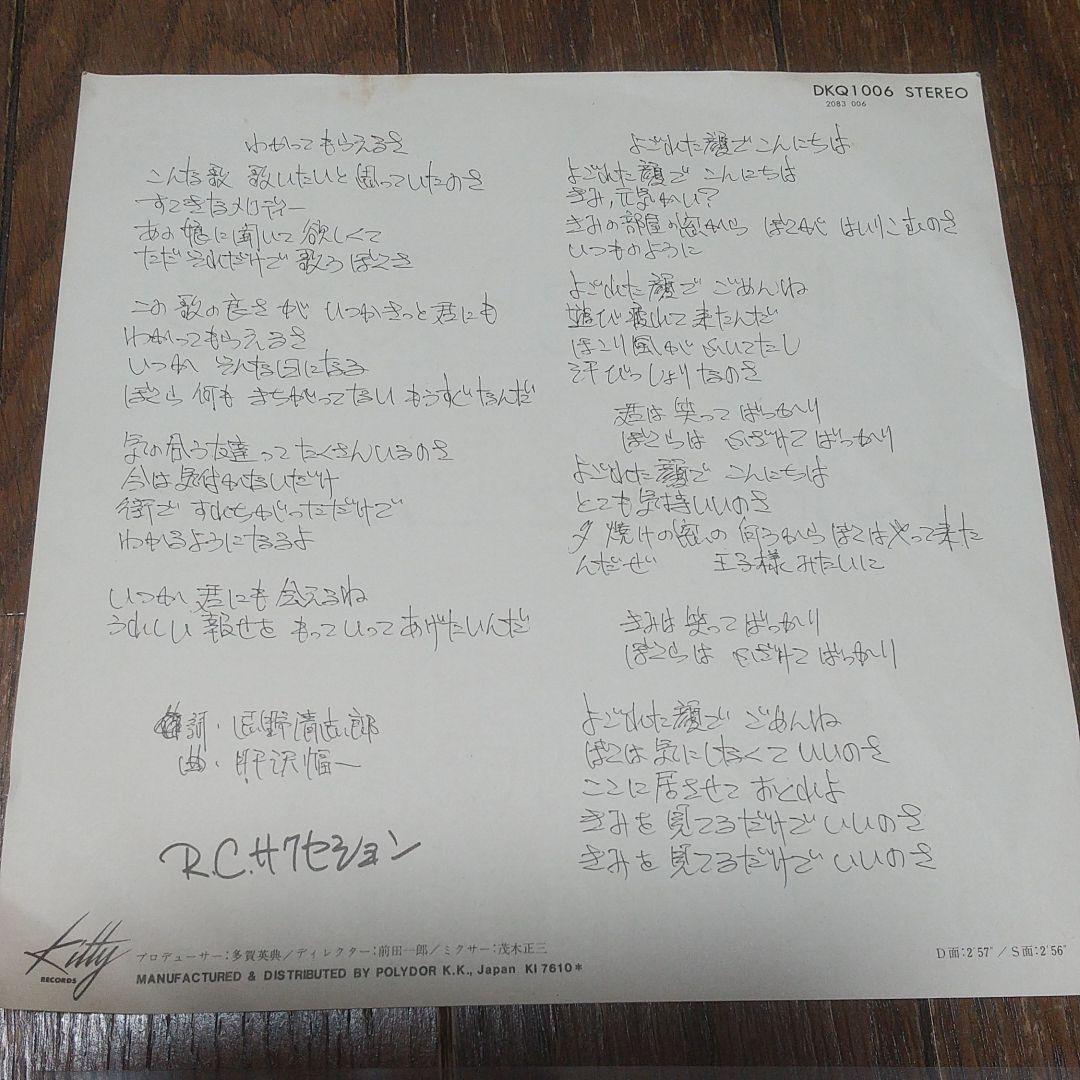 DKQ1006 STEREO
2083 006
わかってもらえるさ
こんな歌 歌いたいと思っていたのさ
すてきなメロディー
あの娘に聞いて欲しくて
ただそれだけで歌うぼくさ
この歌の良さが いつかきっと君にも
わかってもらえるさ
いつか そんな日になる
ぼくら何も まちがってない もうすぐなんだ
気の合う友達ってたくさんいるのさ
今は気付かないだけ
街で すれちがっただけで
わかるようになるよ
いつか 君にも 会えるね
うれしい 報せを もっていってあげたいんだ
作詞・忌野清志郎
曲・肝沢幅一
R.C.サクセション
よごれた顔でこんにちは
よごれた顔で こんにちは
きみ,元気かい?
きみの部屋の窓から ぼくが はいりこむのさ
いつものように
よごれた顔で ごめんね
遊び疲れて来たんだ
ほこり風が ふいてたし
汗びっしょりなのさ
君は 笑って ばっかり
ぼくらは ふざけて ばっかり
よごれた顔で こんにちは
とても気持いいのさ
夕焼けの窓の 向うから ぼくはやって来た
んだぜ 王子様みたいに
きみは 笑って ばっかり
ぼくらは ふざけて ばっかり
よごれた顔で ごめんね
ぼくは気にしなくていいのさ
ここに居させて おくれよ
きみを見てるだけでいいのさ
きみを見てるだけで いいのさ
Kitty
RECORDS
プロデューサー:多賀英典/ディレクター:前田一郎/ミクサー:茂木正三
MANUFACTURED & DISTRIBUTED BY POLYDOR K.K., Japan KI 7610*
D面:2′57″/S面:2′56″